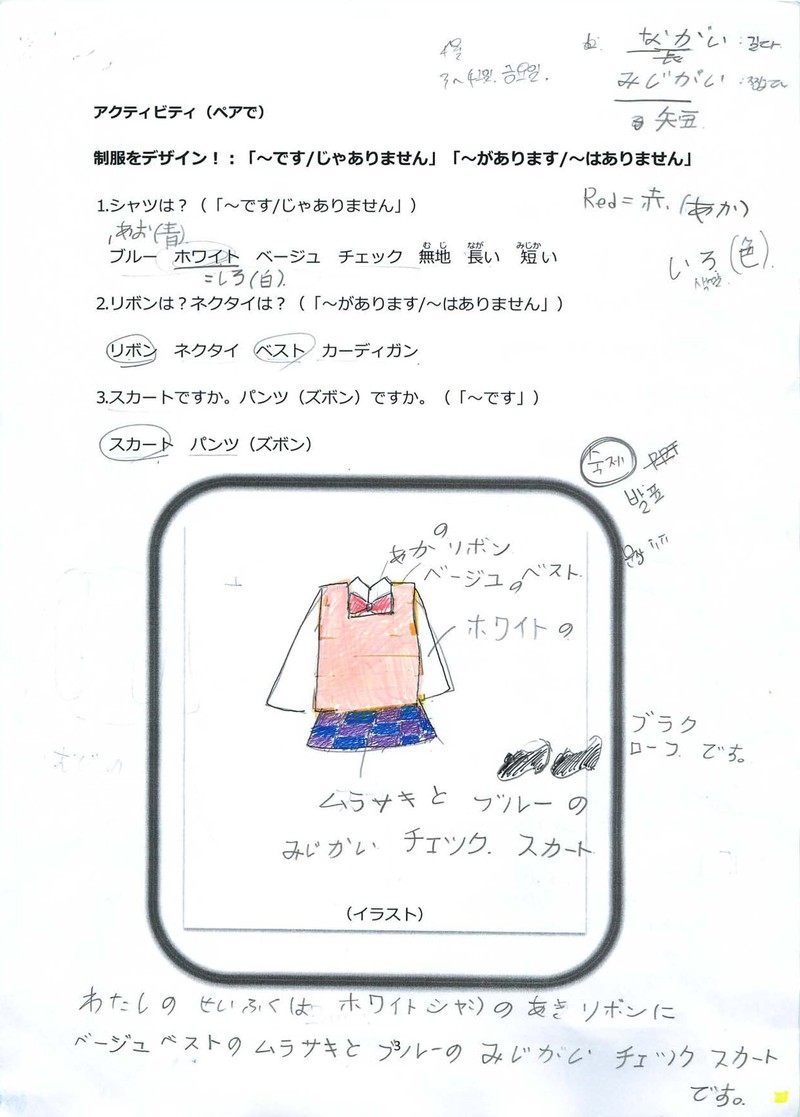 ながい : 길다.
長
3~4월. 금요일.
みじがい
アクティビティ（ペアで）
矢豆
制服をデザイン！：「～です/じゃありません」「～があります/～はありません」
1.シャツは？（「～です/じゃありません」）
Red = 赤. (あか)
あお(青).
ブルー　ホワイト　ベージュ　チェック　無地　長い　短い
むじ　なが　みじか
=しろ(白).
いろ(色).
2.リボンは？ネクタイは？（「～があります/～はありません」）
リボン　ネクタイ　ベスト　カーディガン
3.スカートですか。パンツ（ズボン）ですか。（「～です」）
スカート　パンツ（ズボン）
숙제
발표
あかのリボン
ベージュのベスト
ホワイトの
ブラク
ローフ です。
ムラサキと ブルーの
みじかい チェック. スカート
（イラスト）
わたしの せいふくは ホワイトシャツの あき リボンに
ベージュ ベストの ムラサキと ブルーの みじがい チェック スカート
3
です。